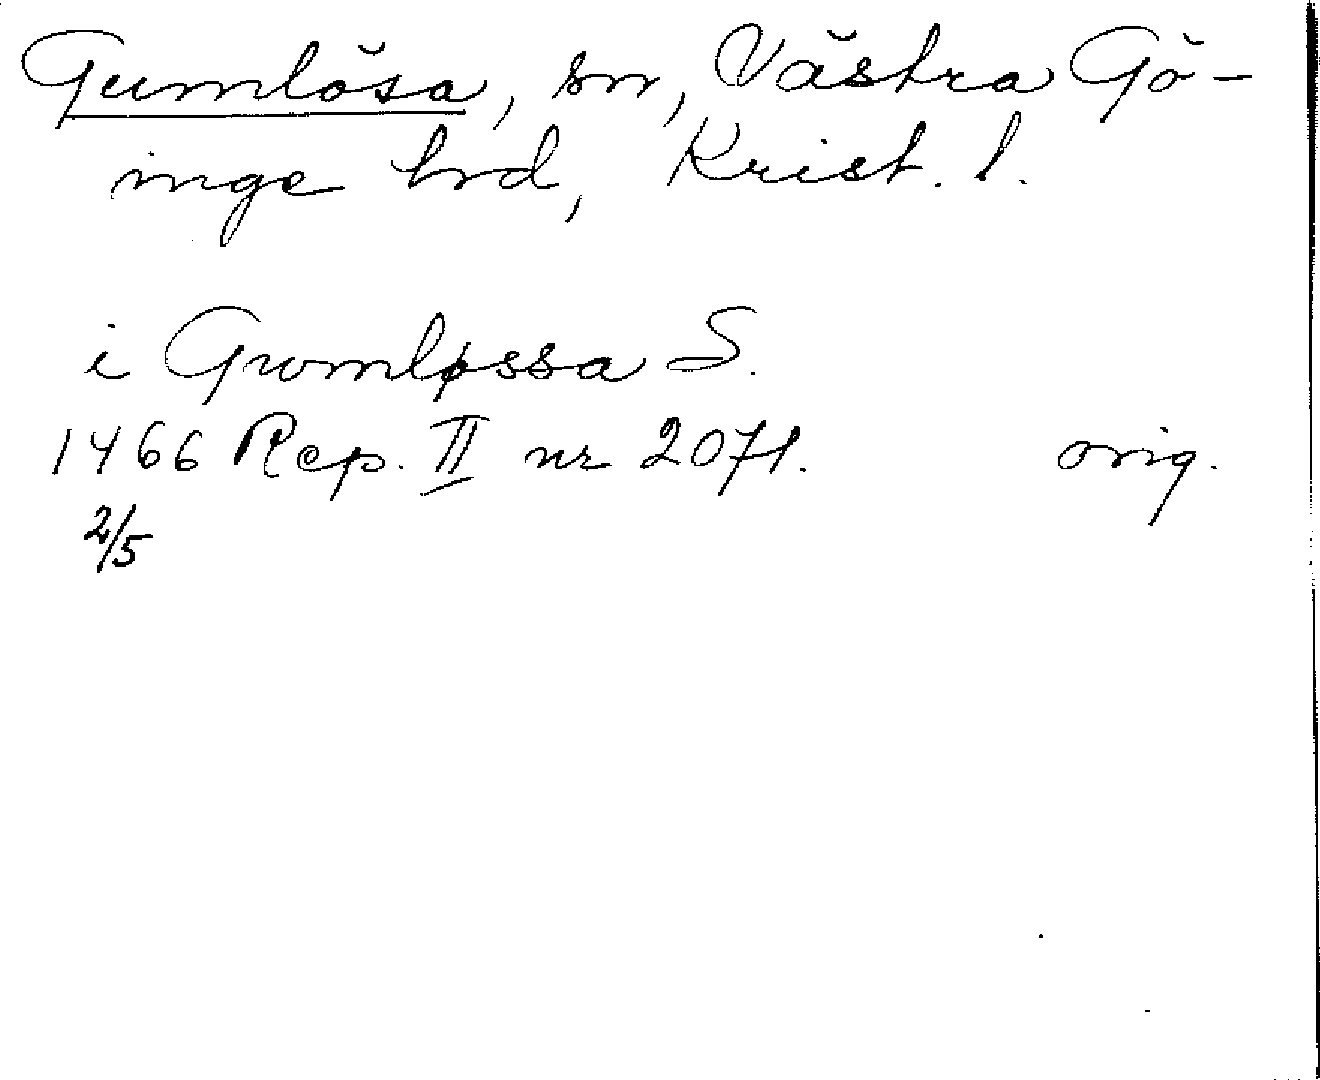 Gumlösa, sn, Västra Gö-
inge hrd, Krist. l.
i Gwmløssa S.
1466 Rep. II nr 2071. orig.
2/5